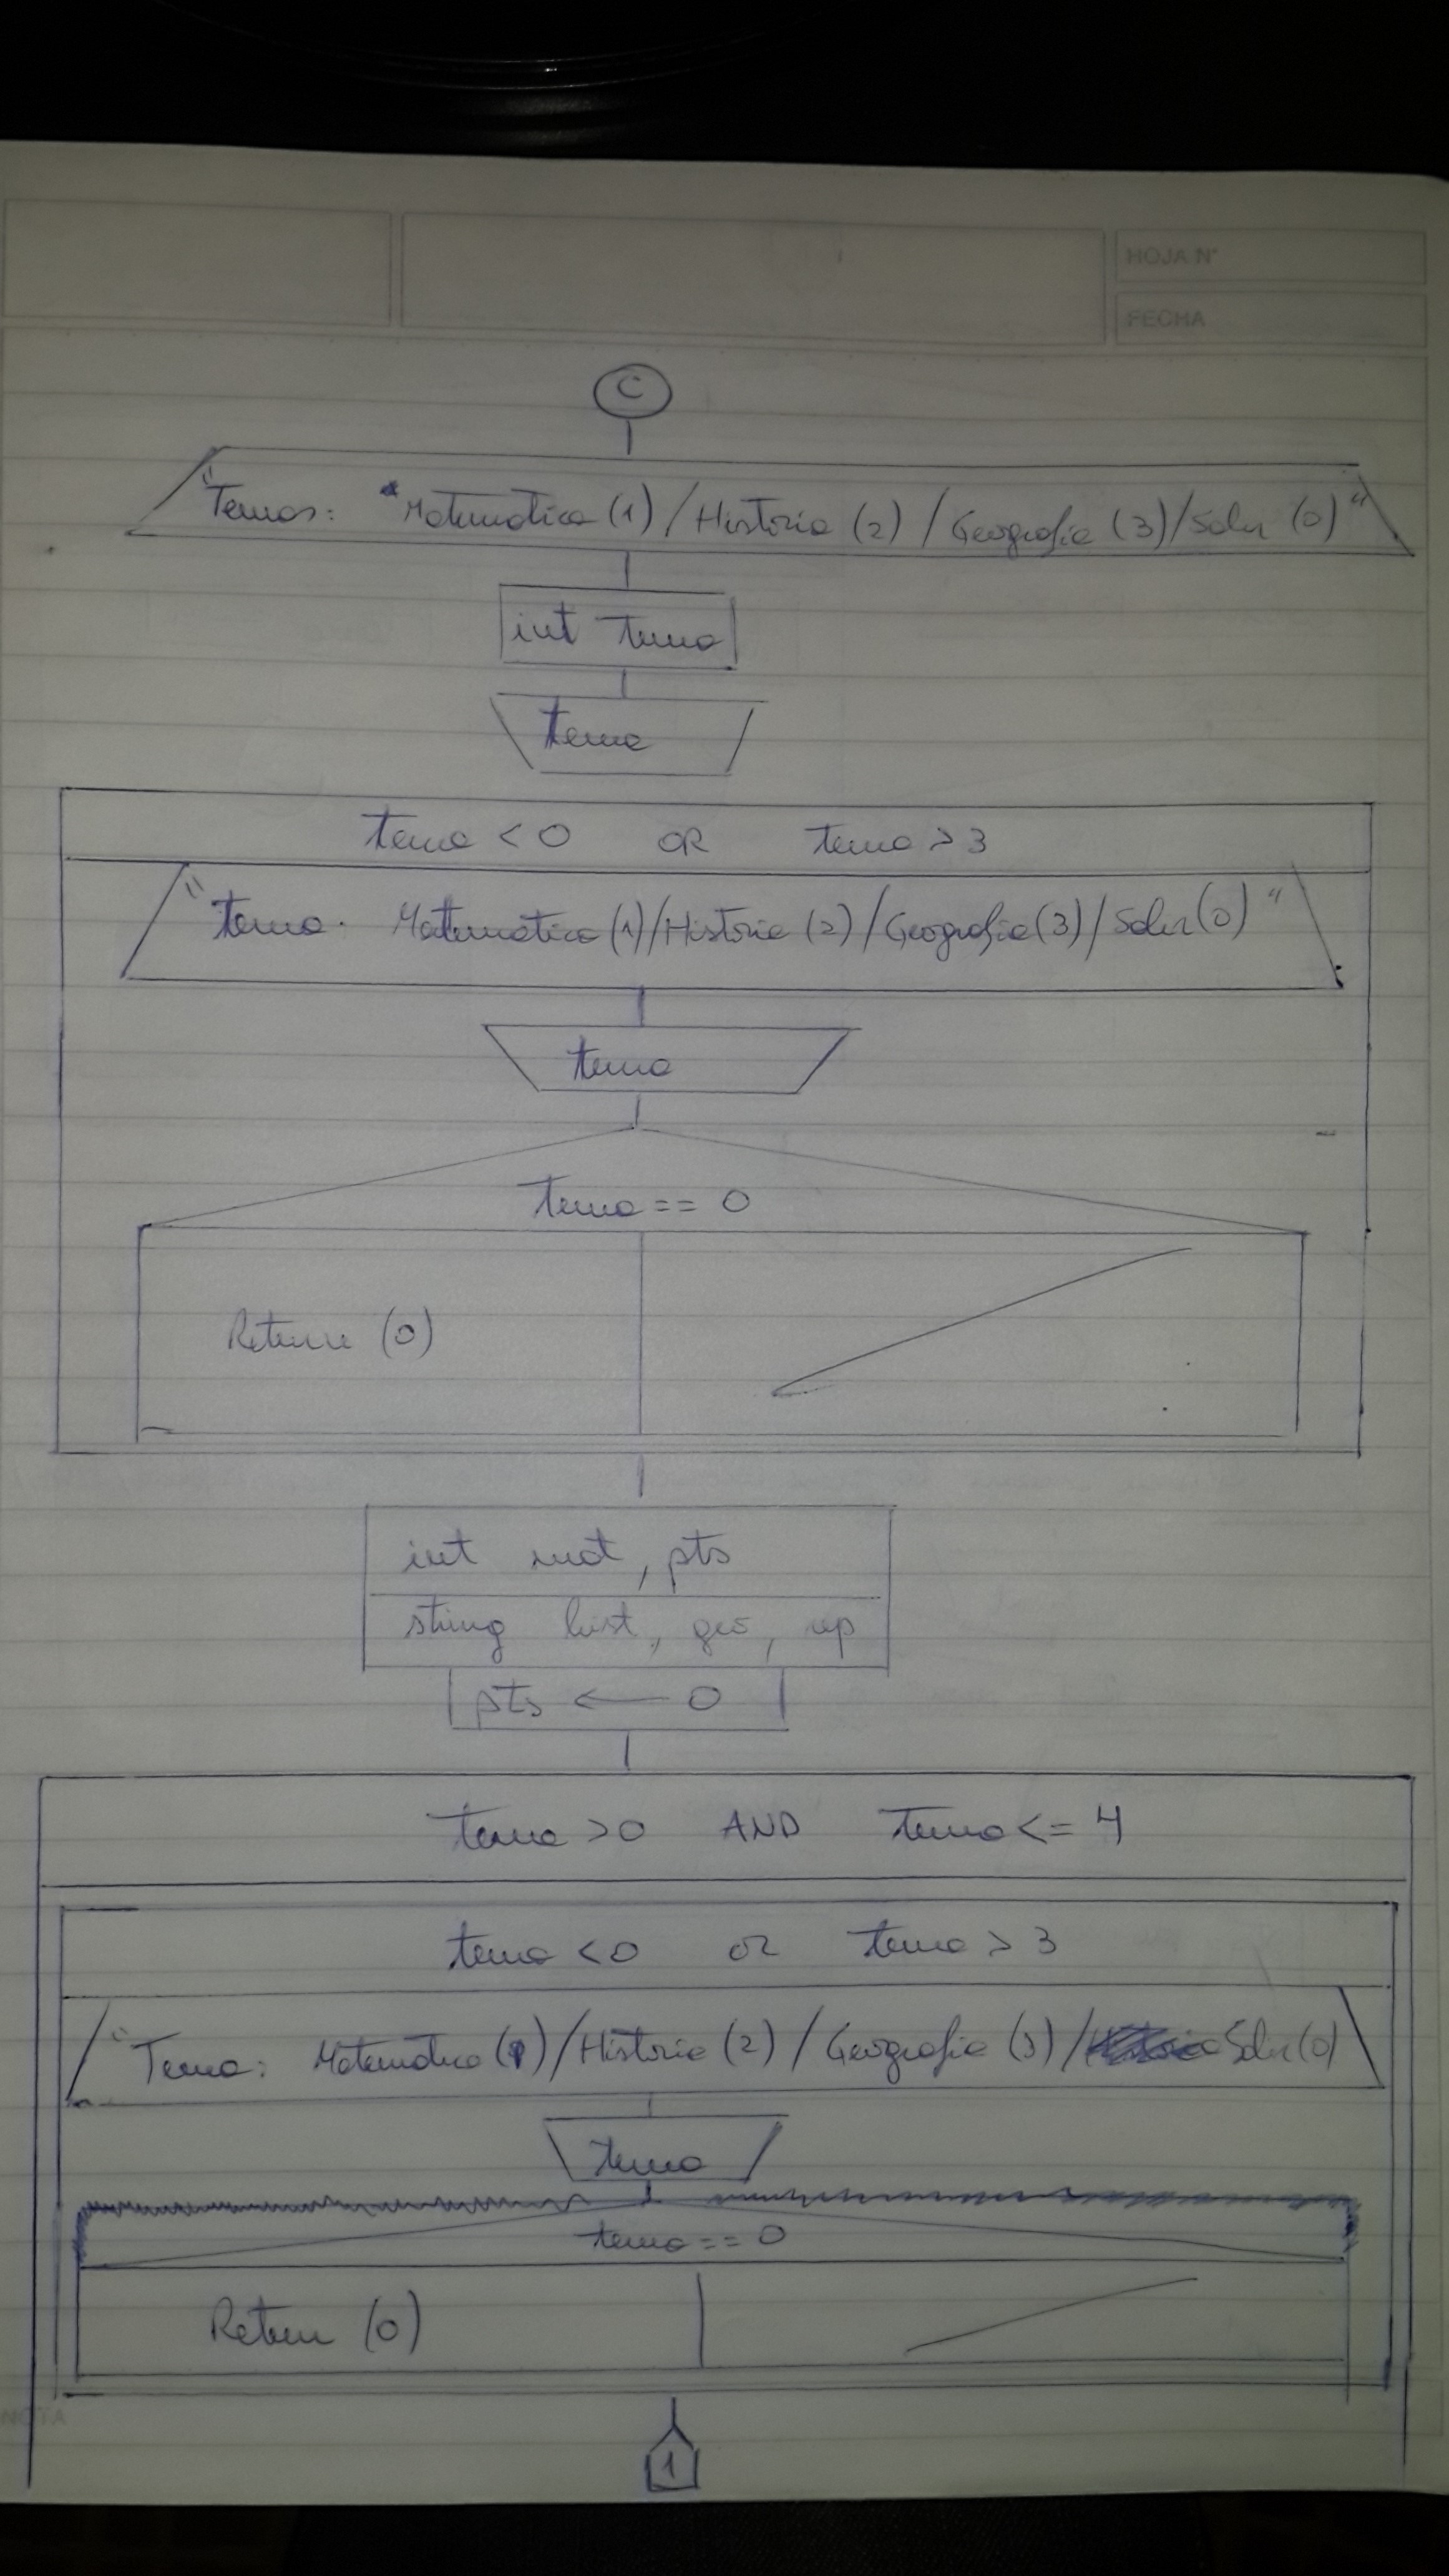 HOJA N°
FECHA
C
"Temas: Matematica (1) / Historia (2) / Geografia (3) / Salir (0)"
int tema
tema
tema < 0 OR tema > 3
"tema. Matematica (1) / Historia (2) / Geografia (3) / Salir (0)"
tema
tema == 0
Return (0)
int mat, pts
string hist, geo, rep
pts ← 0
tema > 0 AND tema <= 4
tema < 0 or tema > 3
"Tema: Matematica (1) / Historia (2) / Geografia (3) / Salir (0)
tema
tema == 0
Return (0)
NOTA
1